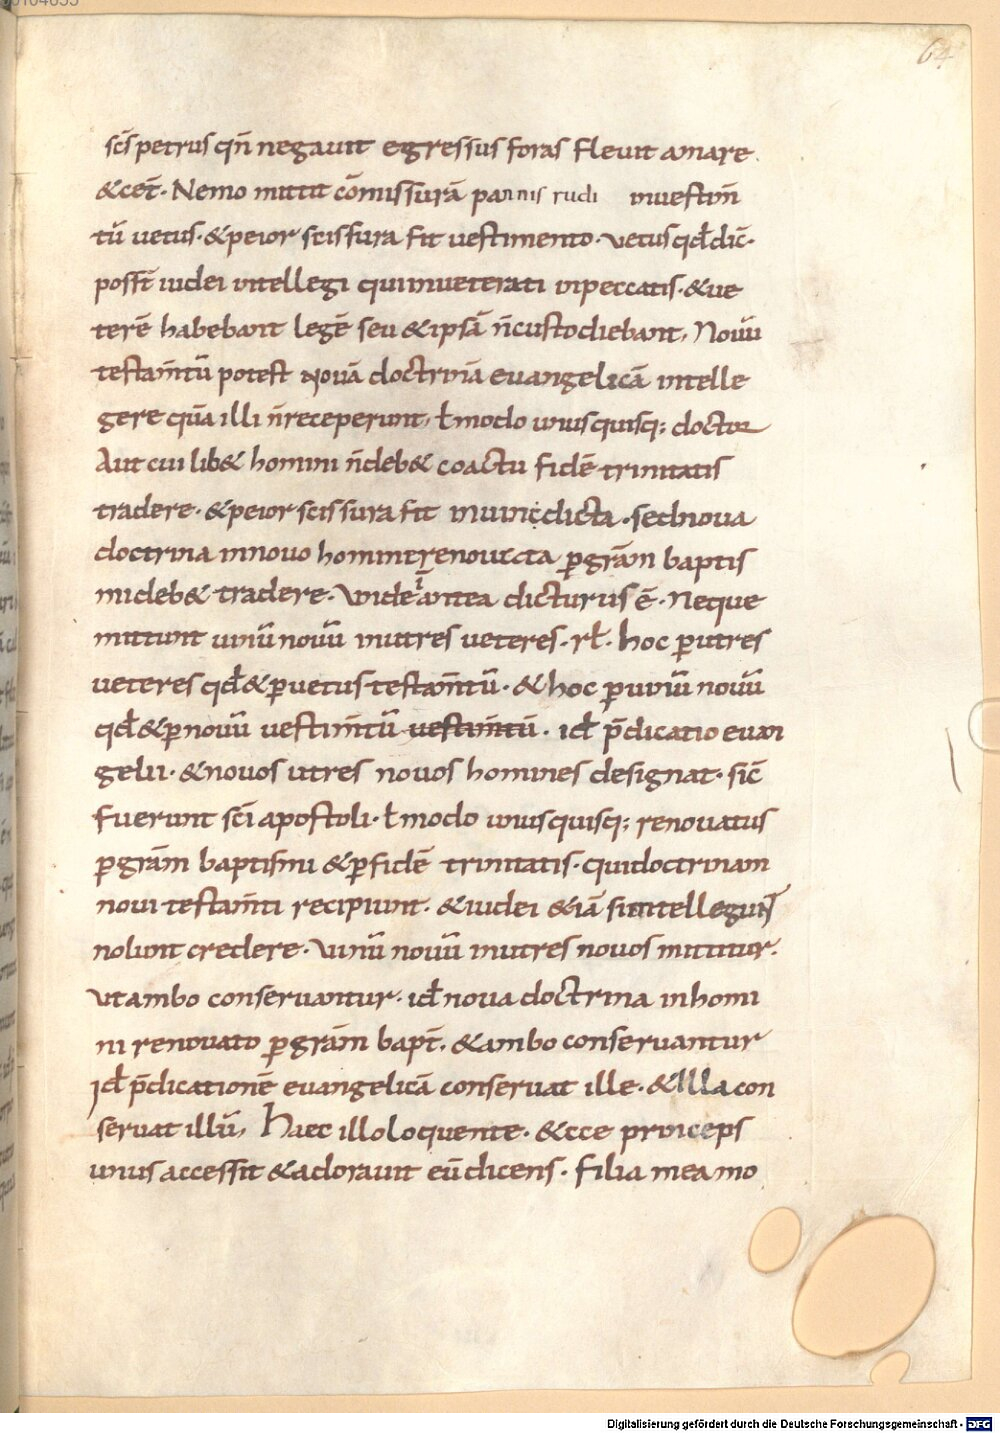 64
scs̄ petrus qn̄ negauit egressus foras fleuit amare.
&cet̄. Nemo mittit cōmissurā pannis rudi inuestim̄
tū uetus. &peior scissura fit uestimento. uetus qd̄ dic̄.
posst̄ iudei intellegi qui inueterati inpeccatis. &ue
terē habebant legē seu &ipsā n̄custodiebant, Nouū
testam̄tū potest nouā doctrinā euangelicā intelle
gere quā illi n̄receperunt, ł modo unus quisq; doctor
Aut cui lib& homini n̄deb& coactu fidē trinitatis
tradere. &peior scissura fit
doctrina innouo homine p̄ grām baptis
mi deb& tradere. Vnde antea dicturus ē. Neque
mittunt uinū nouū inutres ueteres. rł. hoc p̄ utres
ueteres qd̄ &p̄ uetus testam̄tū. &hoc p̄ uinū nouū
qd̄ &p̄ nouū uestim̄tū uestim̄tū. id̄ p̄dicatio euan
gelii. &nouos utres nouos homines designat. sic̄
fuerunt scī apostoli. ł modo unus quisq; renouatus
p̄ grām baptismi &p̄ fidē trinitatis. qui doctrinam
noui testam̄ti recipiunt. &iudei &iā si intellegunt
nolunt credere. Vinū nouū inutres nouos mittitur.
Vt ambo conseruantur. id̄ noua doctrina inhomi
ni renouato p̄ grām bapt̄. &ambo conseruantur
id̄ p̄dicationē euangelicā conseruat ille. &illa con
seruat illū, Haec illo loquente. &cce princeps
unus accessit &adorauit eū dicens. filia mea mo
Digitalisierung gefördert durch die Deutsche Forschungsgemeinschaft - DFG